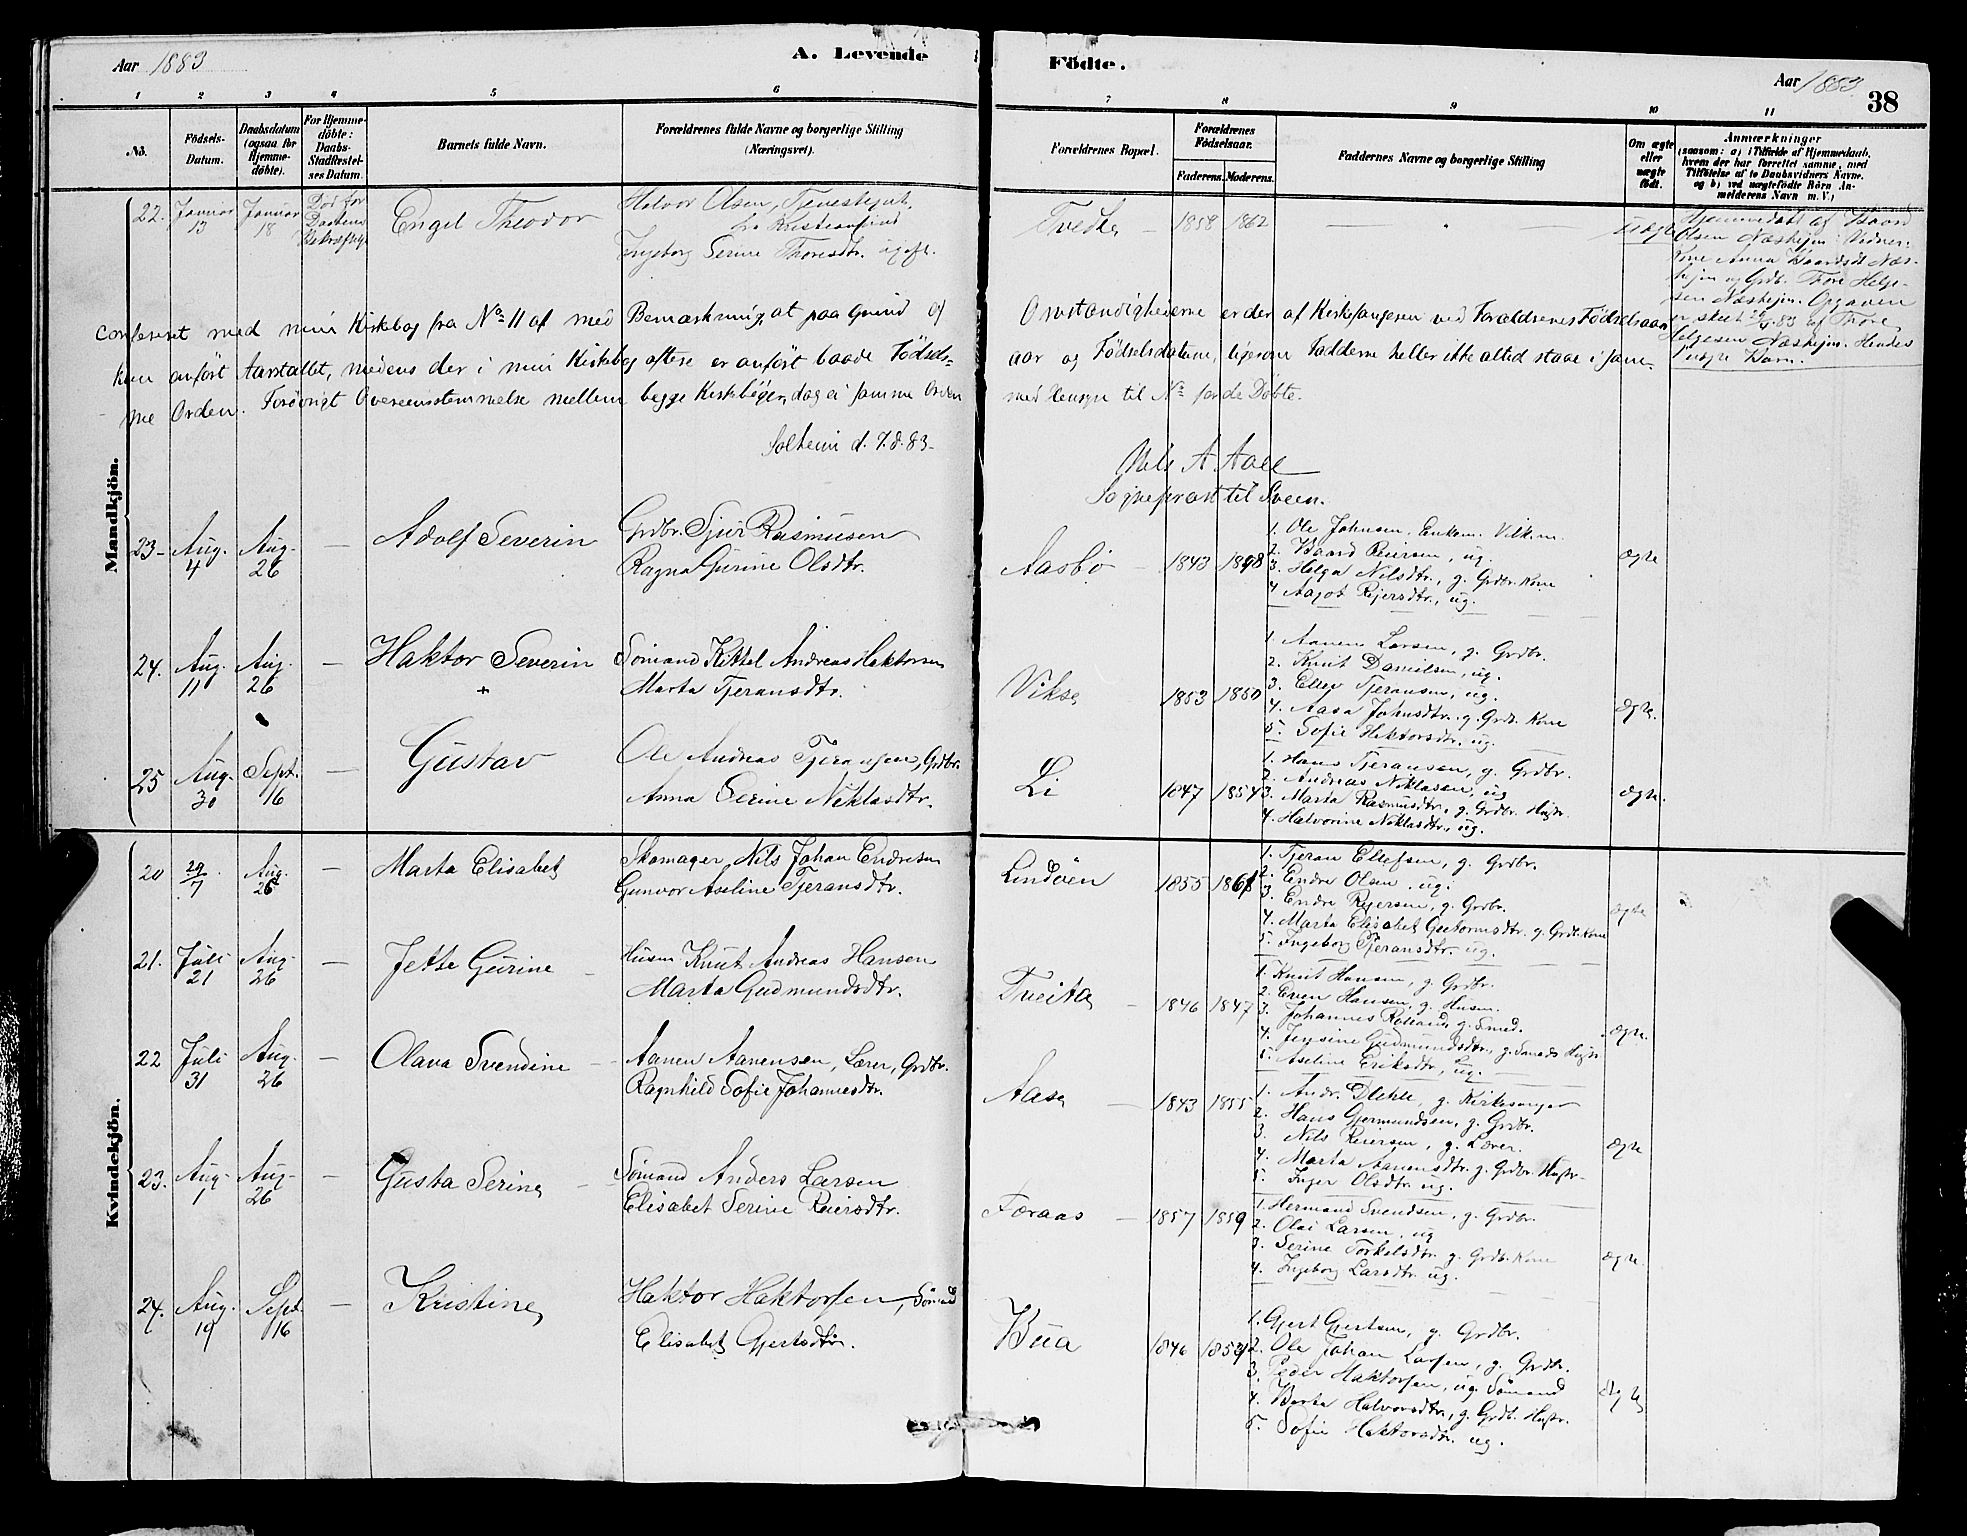 Aar 1883
A. Levende
Födte.
Aar 1883
38
1 2 3 4 5 6
7 8 9 10 11
No.
Födsels-Datum.
Daabsdatum (ogsaa for Hjemme-döbte).
For Hjemme-döbte: Daabs-Stadfæstel-ses Datum.
Barnets fulde Navn.
Forældrenes fulde Navne og borgerlige Stilling (Næringsvei).
Forældrenes Bopæl.
Forældrenes Födselsaar.
Faderens. Moderens.
Faddernes Navne og borgerlige Stilling
Om ægte eller uægte födt.
Anmærkninger
(saasom: a) i Tilfælde af Hjemmedaab, hvem der har forrettet samme, med Tilföielse af to Daabsvidners Navne, og b) ved uægtefödte Börn An-melderens Navn m. V.)
Mandkjön.
22. Januar 13 Januar 18 Död før Daabens Bekræftelse Engel Theodor
Halvor Olsen, Tjenestegut,
fra Kristiansund
Ingeborg Serine Thoresdtr. ugift.
Tvedte 1858 1862 Uægte
Hjemmedøbt af Baard
Olsen Næshejm. Vidner:
Kone Anna Baardsdt. Næs-
hejm og Grdb. Thore Helge-
sen Næshejm. Opgaven
er skeet af Thore
Helgesen Næshejm. Hendes
uægte Barn.
Confereret med min Kirkebog fra No 11 af med Bemærkning, at paa Grund af
Omstændighederne er der af Kirkesangeren ved Forældrenes Födselsaar
kun anfört Aarstallet, medens der i min Kirkebog oftere er anfört baade Födsels-
aar og Födselsdatum, ligesom Fadderne heller ikke altid staae i sam-
me Orden. Forövrigt Overeensstemmelse mellem begge Kirkebøger, dog ei samme Orden
med Hensyn til No for de Döbte.
Solheim d. 7.8.83
Nils A Aall
Sognepræst til Sveen.
23 Aug. 4 Aug. 26 — Adolf Severin
Grdbr. Sjur Rasmusen
Ragna Gurine Olsdtr.
Aasbø 1843 1848 ægte
1. Ole Johnsen, Enkem. Vikse
2. Baard Reiersen, ug.
3. Helga Nilsdtr., g. Grdbr. Kone
4. Aagot Rejersdtr., ug.
24. Aug. 11 Aug. 26 — Haktor Severin
Sömand Kittel Andreas Haktorsen
Marta Tjeransdtr.
Vikse 1853 1850 ægte.
1. Aanen Larsen, g. Grdbr.
2. Knut Danielsen, ug.
3. Ellef Tjeransen, ug.
4. Aasa Johnsdtr. g. Grdb. Kone
5. Sofie Haktorsdtr. ug.
25 Aug. 30 Sept. 16 — Gustav
Ole Andreas Tjeransen, Grdbr.
Anna Serine Niklasdtr.
Li 1847 1854 ægte.
1. Hans Tjeransen, g. Grdbr.
2. Andreas Niklasen, ug
3. Marta Rasmusdtr., g. Grdbr. Hustr.
4. Halvorine Niklasdtr., ug.
Kvindekjön.
20 29/7 Aug. 26 — Marta Elisabet
Skomager Nils Johan Endresen
Gunvor Aseline Tjeransdtr.
Lindöen 1855 1861 ægte
1. Tjeran Ellefsen, g. Grdbr.
2. Endre Olsen, ug.
3. Endre Rejersen, g. Grdbr.
4. Marta Elisabet Guttormsdtr. g. Grdb. Kone
5. Ingeborg Tjeransdtr. ug.
21. Juli 21 Aug. 26 — Jette Gurine
Husm Knut Andreas Hansen
Marta Gudmundsdtr.
Tveita 1846 1847 ægte.
1. Knut Hansen, g. Grdbr.
2. Even Hansen, g. Husm.
3. Johannes , g. Smed.
4. Jensine Gudmundsdtr., g. Smeds Hustr
5. Aseline Eriksdtr., ug.
22 Juli 31 Aug. 26 — Olava Svendine
Aanen Aanensen, Lærer, Grdbr.
Ragnhild Sofie Johannesdtr.
Aase 1843 1855 ægte
1. Andr. , g. Kirkesanger
2. Hans Gjermundsen, g. Grdbr.
3. Nils Reiersen, g. Lærer.
4. Marta Aanensdtr. g. Grdbr. Hustr.
5. Inger Olsdtr. ug.
23. Aug. 1 Aug. 26 — Gusta Serine
Sömand Anders Larsen
Elisabet Serine Reiersdtr.
Føraas 1857 1859 ægte
1. Hermand Svendsen, g. Grdbr.
2. Olai Larsen, ug
3. Serine Torkelsdtr. g. Grdb. Kone
4. Ingeborg Larsdtr. ug.
24. Aug. 19 Sept. 16 — Kristine
Haktor Haktorsen, Sömand
Elisabet Gjertsdtr.
Bua 1846 1854 ægte
1. Gjert Gjertsen, g. Grdbr.
2. Ole Johan Larsen, g. Grdbr.
3. Peder Haktorsen, ug. Sömand
4. Berta Halvorsdtr., g. Grdb. Hustr.
5. Sofie Haktorsdtr. ug.